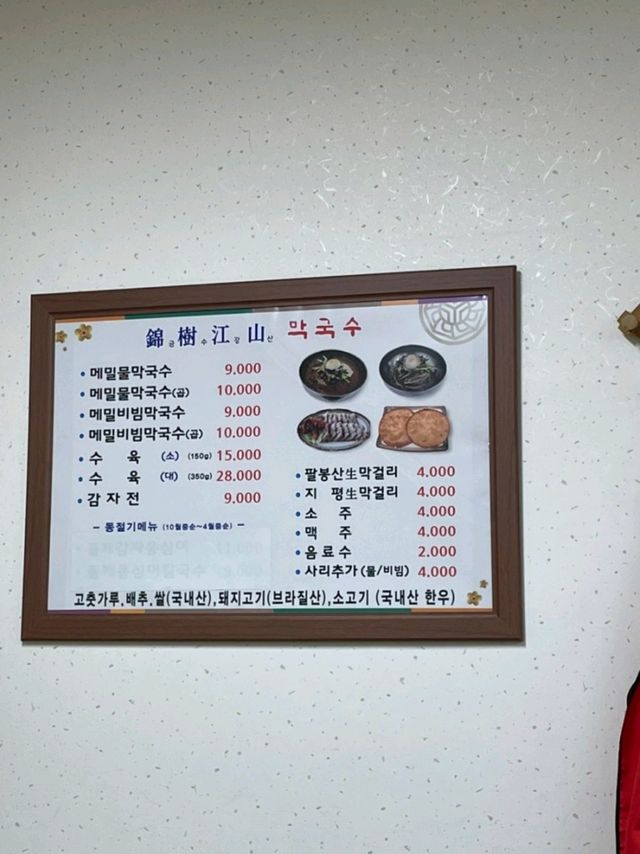 錦금樹수江강山산 막국수
• 메밀물막국수 9.000
• 메밀물막국수(곱) 10.000
• 메밀비빔막국수 9.000
• 메밀비빔막국수(곱) 10.000
• 수 육 (소) (150g) 15.000
• 수 육 (대) (350g) 28.000
• 감자전 9.000
– 동절기메뉴 (10월중순~4월중순) –
• 팔봉산生막걸리 4.000
• 지 평生막걸리 4.000
• 소 주 4.000
• 맥 주 4.000
• 음료수 2.000
• 사리추가(물/비빔) 4.000
고춧가루,배추,쌀(국내산),돼지고기(브라질산),소고기 (국내산 한우)